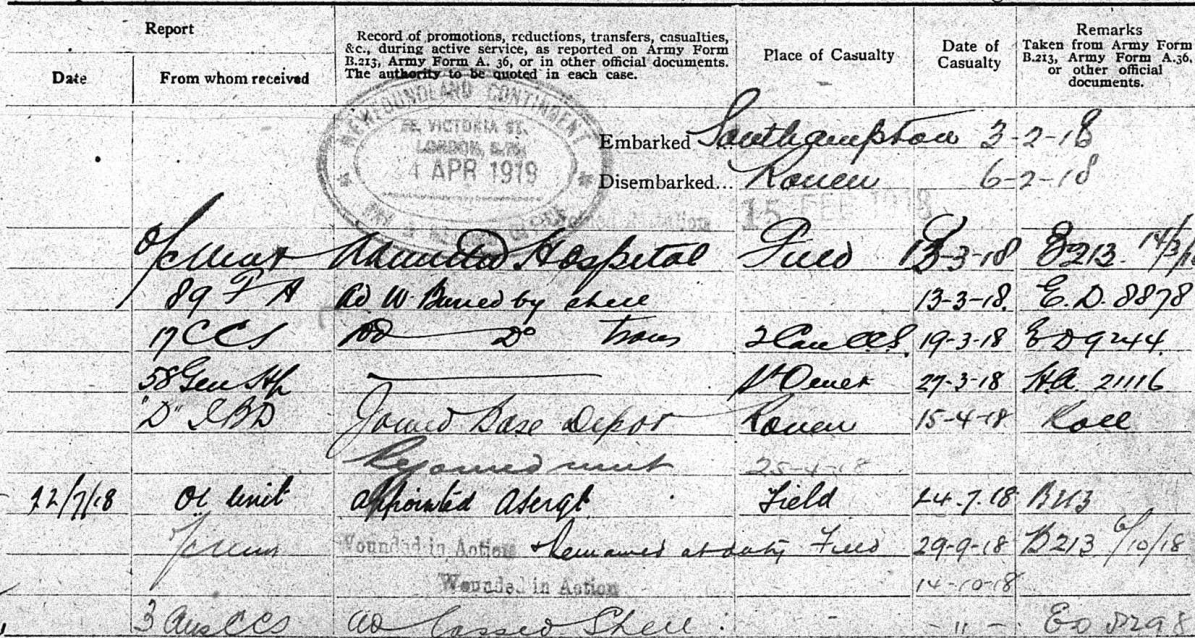 Report
Record of promotions, reductions, transfers, casualties,
&c., during active service, as reported on Army Form
B.213, Army Form A. 36, or in other official documents.
The authority to be quoted in each case.
Place of Casualty
Date of
Casualty
Remarks
Taken from Army Form
B.213, Army Form A.36,
or other official
documents.
Date
From whom received
NEWFOUNDLAND CONTINGENT
58, VICTORIA ST.
LONDON, S.W.
4 APR 1919
PAY & RECORD OFFICE
Embarked Southampton 3-2-18
Disembarked... Rouen 6-2-18
15 FEB 1918
O/C Unit Admitted Hospital Field 13-3-18 B213 14/3/18
89 F A ad W Buried by shell 13-3-18. E.D. 8878
17 CCS ad Do trans 2 Can CCS. 19-3-18 ED 9244
58 Gen Hp St Omer 27-3-18 HA. 21116
"D" IBD Joined Base Depot Rouen 15-4-18 Roll
Rejoined unit 25-4-18
22/7/18 OC Unit Appointed ASergt. Field 24-7-18 B213
O/C Unit Wounded in Action & Remained at duty Field 29-9-18 B213 6/10/18
Wounded in Action 14-10-18
3 Aus CCS ad Gassed Shell - " - ED 8298